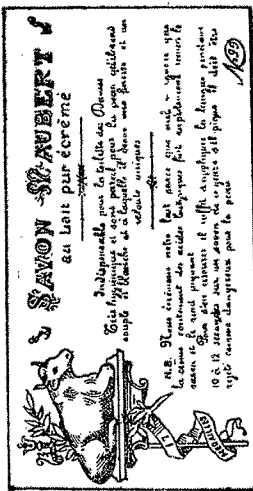 SAVON St AUBERT
au lait pur écrémé
Indispensable pour la toilette des Dames
Très hygiénique et sans pareil pour la peau qu'il rend
souple et blanche et à laquelle il donne une finesse et un
velouté uniques
N.B. Nous écrémons notre lait parce que nul n'ignore que
la crème contenant des acides butyriques fait rapidement rancir le
savon et le rend piquant
Pour s'en assurer il suffit d'appliquer la langue pendant
10 à 12 secondes sur un savon de ce genre s'il pique il doit être
rejeté comme dangereux pour la peau